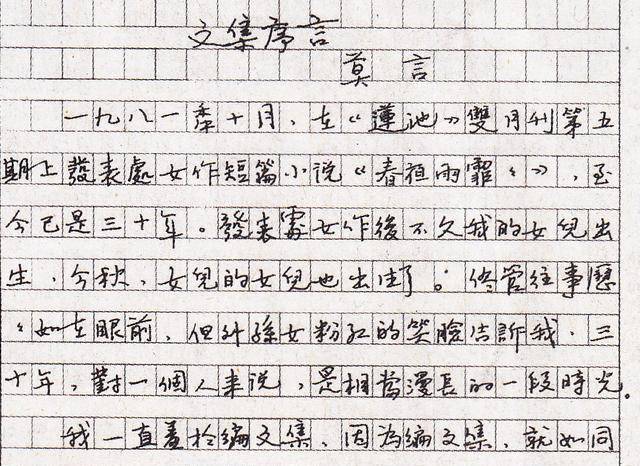 文集序言
莫言
一九八一季十月，在《蓮池》雙月刊第五
期上發表處女作短篇小说《春夜雨霏々》，至
今已是三十年。發表處女作後不久我的女兒出
生，今秋，女兒的女兒也出生了。儘管往事歷
々如在眼前，但外孫女粉红的笑臉告訴我，三
十年，對一個人来说，是相當漫長的一段時光。
我一直羞於編文集，因為編文集，就如同